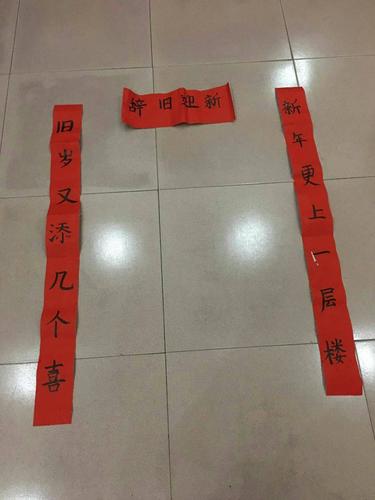 辞旧迎新
旧岁又添几个喜
新年更上一层楼